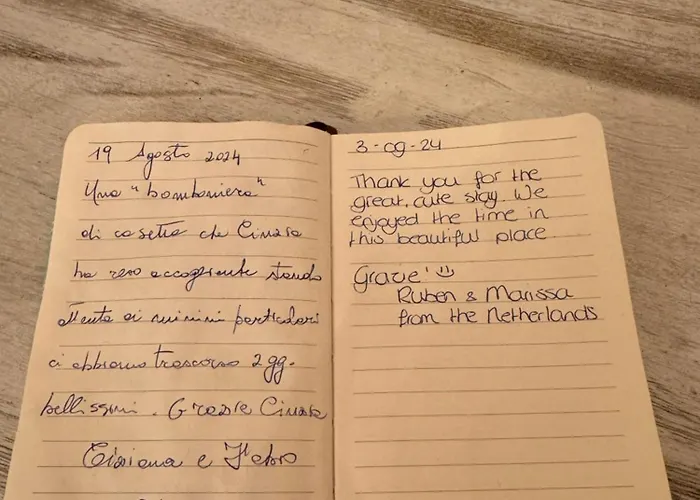 19 Agosto 2024
Una "bomboniera"
di casetta che Cinzia
ha reso accogliente stando
attenta ai minimi particolari
ci abbiamo trascorso 2 gg.
bellissimi. Grazie Cinzia
Tiziana e
3-09-24
Thank you for the
great, cute stay. We
enjoyed the time in
this beautiful place
Grazie! ☺
Ruben & Marissa
from the Netherlands